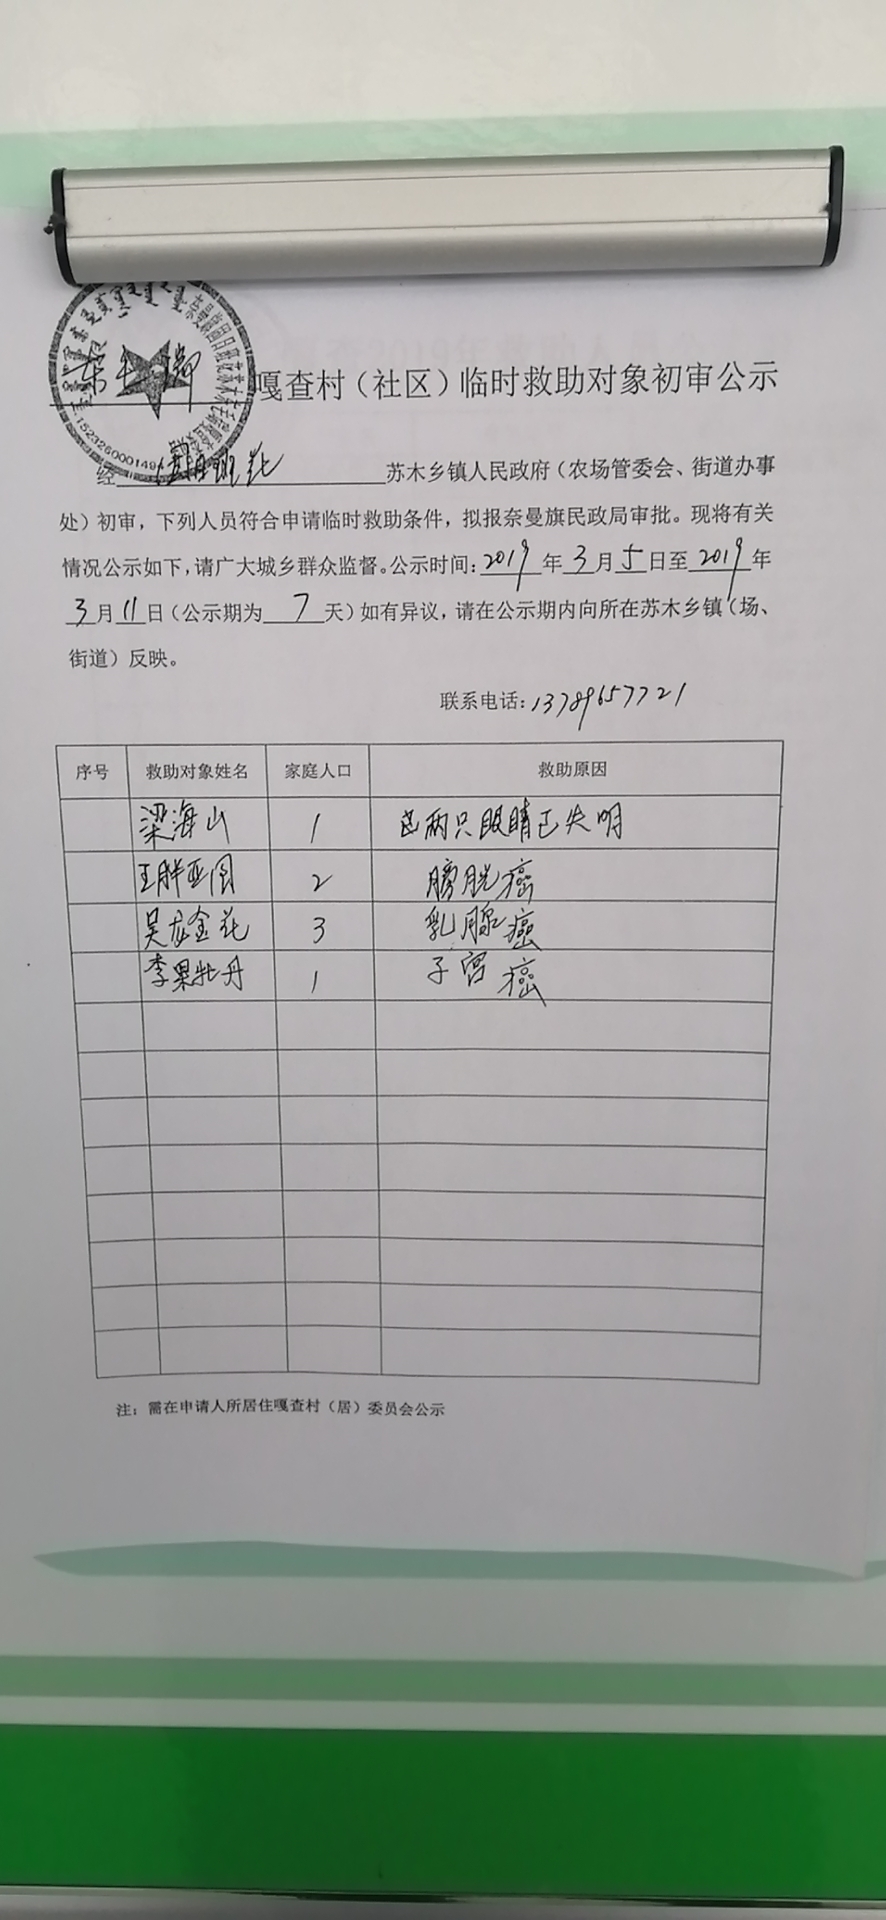 嘎查村（社区）临时救助对象初审公示
经 苏木乡镇人民政府（农场管委会、街道办事
处）初审，下列人员符合申请临时救助条件，拟报奈曼旗民政局审批。现将有关
情况公示如下，请广大城乡群众监督。公示时间：2019年3月5日至2019年
3月11日（公示期为7天）如有异议，请在公示期内向所在苏木乡镇（场、
街道）反映。
联系电话：13789657721
序号 救助对象姓名 家庭人口 救助原因
梁海山 1 两只眼睛已失明
王胖亚图 2 膀胱癌
吴龙金花 3 乳腺癌
李果牡丹 1 子宫癌
注：需在申请人所居住嘎查村（居）委员会公示